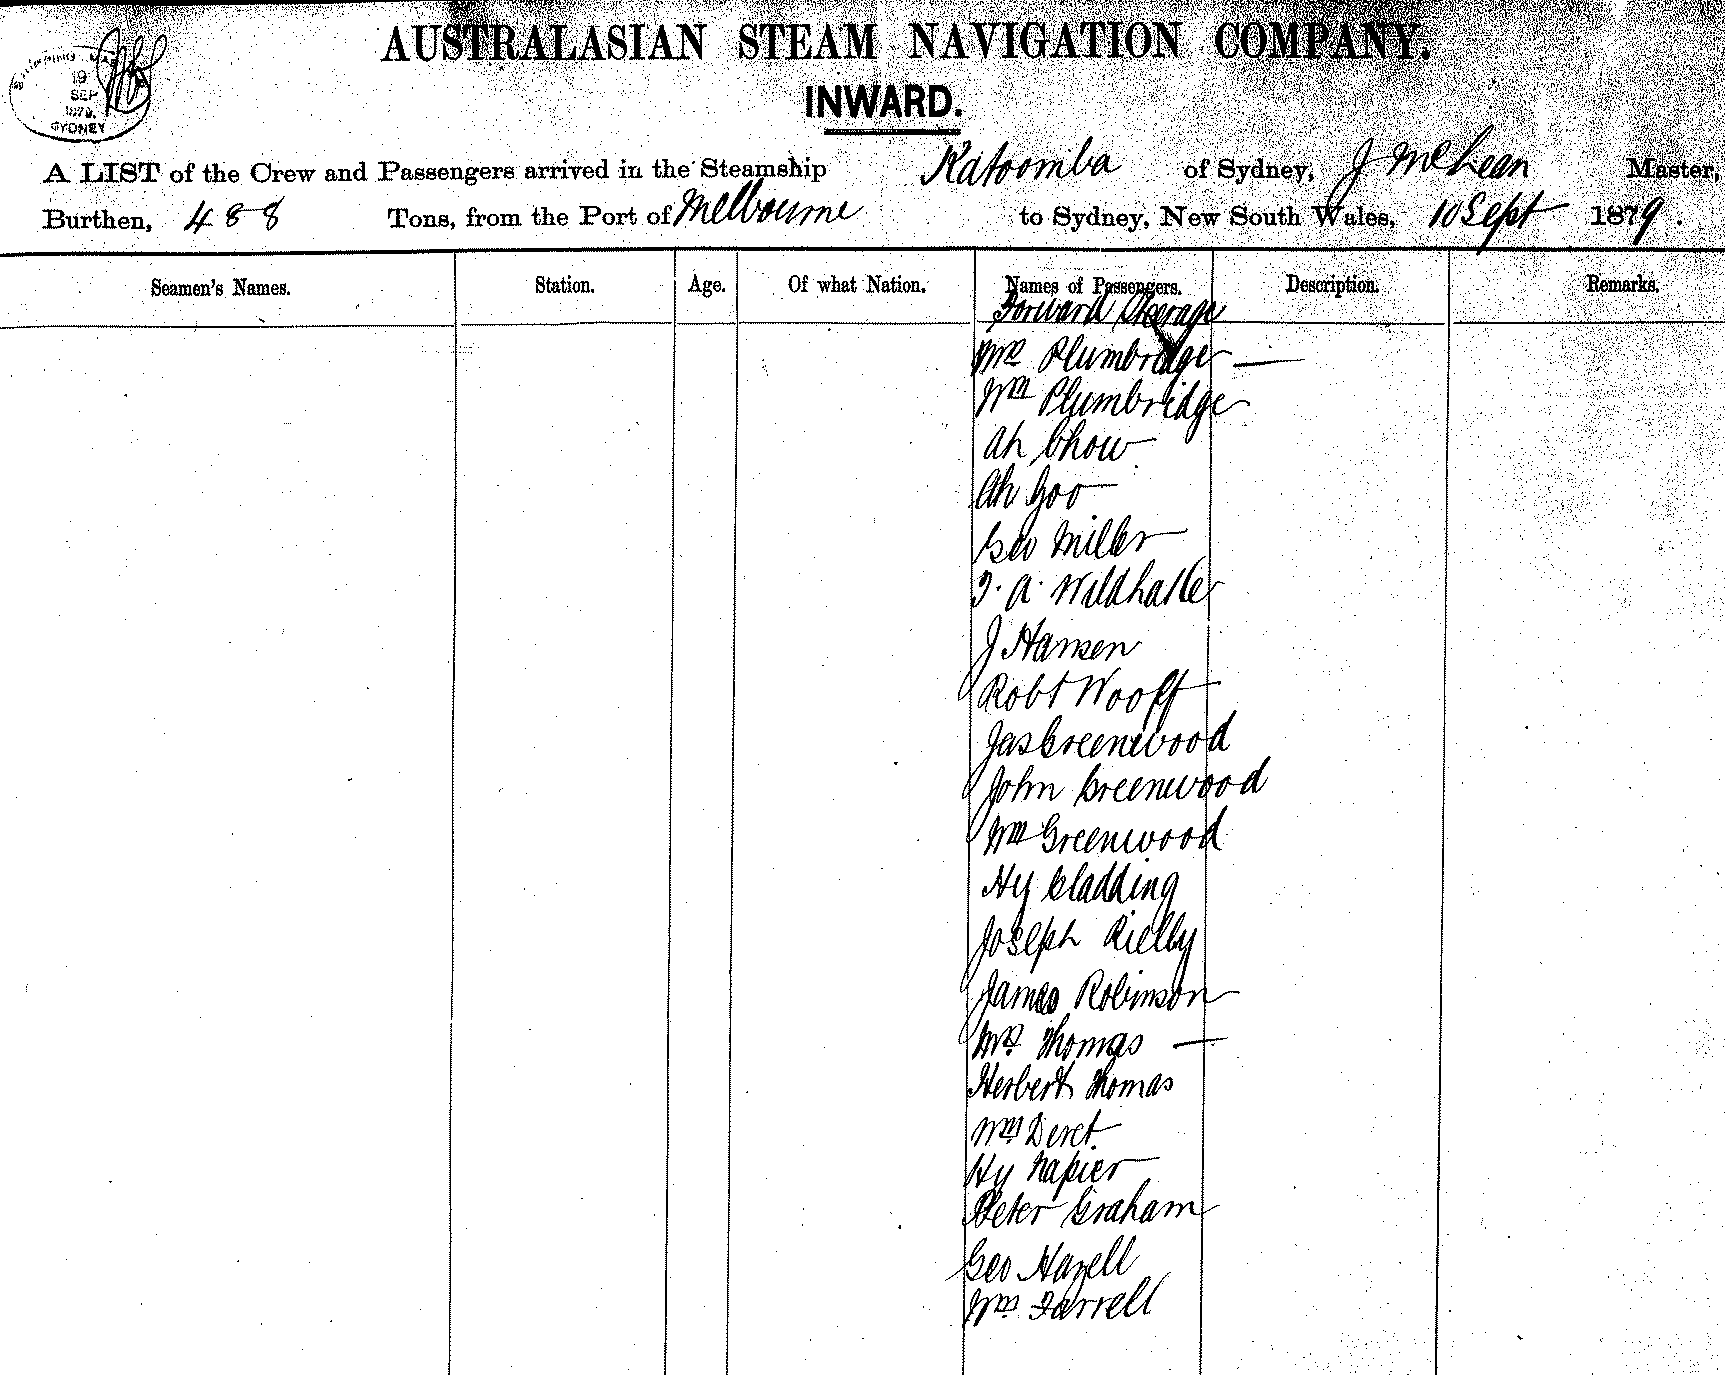 AUSTRALASIAN STEAM NAVIGATION COMPANY.
INWARD.
19
SEP
1879.
SYDNEY
A LIST of the Crew and Passengers arrived in the Steamship Katoomba of Sydney, J McLean Master,
Burthen, 488 Tons, from the Port of Melbourne to Sydney, New South Wales, 10 Sept 1879.
Seamen's Names. Station. Age. Of what Nation. Names of Passengers. Description. Remarks.
Forward Steerage
Mrs Plumbridge —
Wm Plumbridge
Ah Chow
Ah Goo
Geo Miller
J. A.
J Hansen
Robt Wooff
Jas Greenwood
John Greenwood
Wm Greenwood
Hy Gladding
Joseph Rielly
James Robinson
Mrs Thomas —
Herbert Thomas
Wm Deret
Hy Napier
Peter Graham
Geo Hazell
Wm Farrell